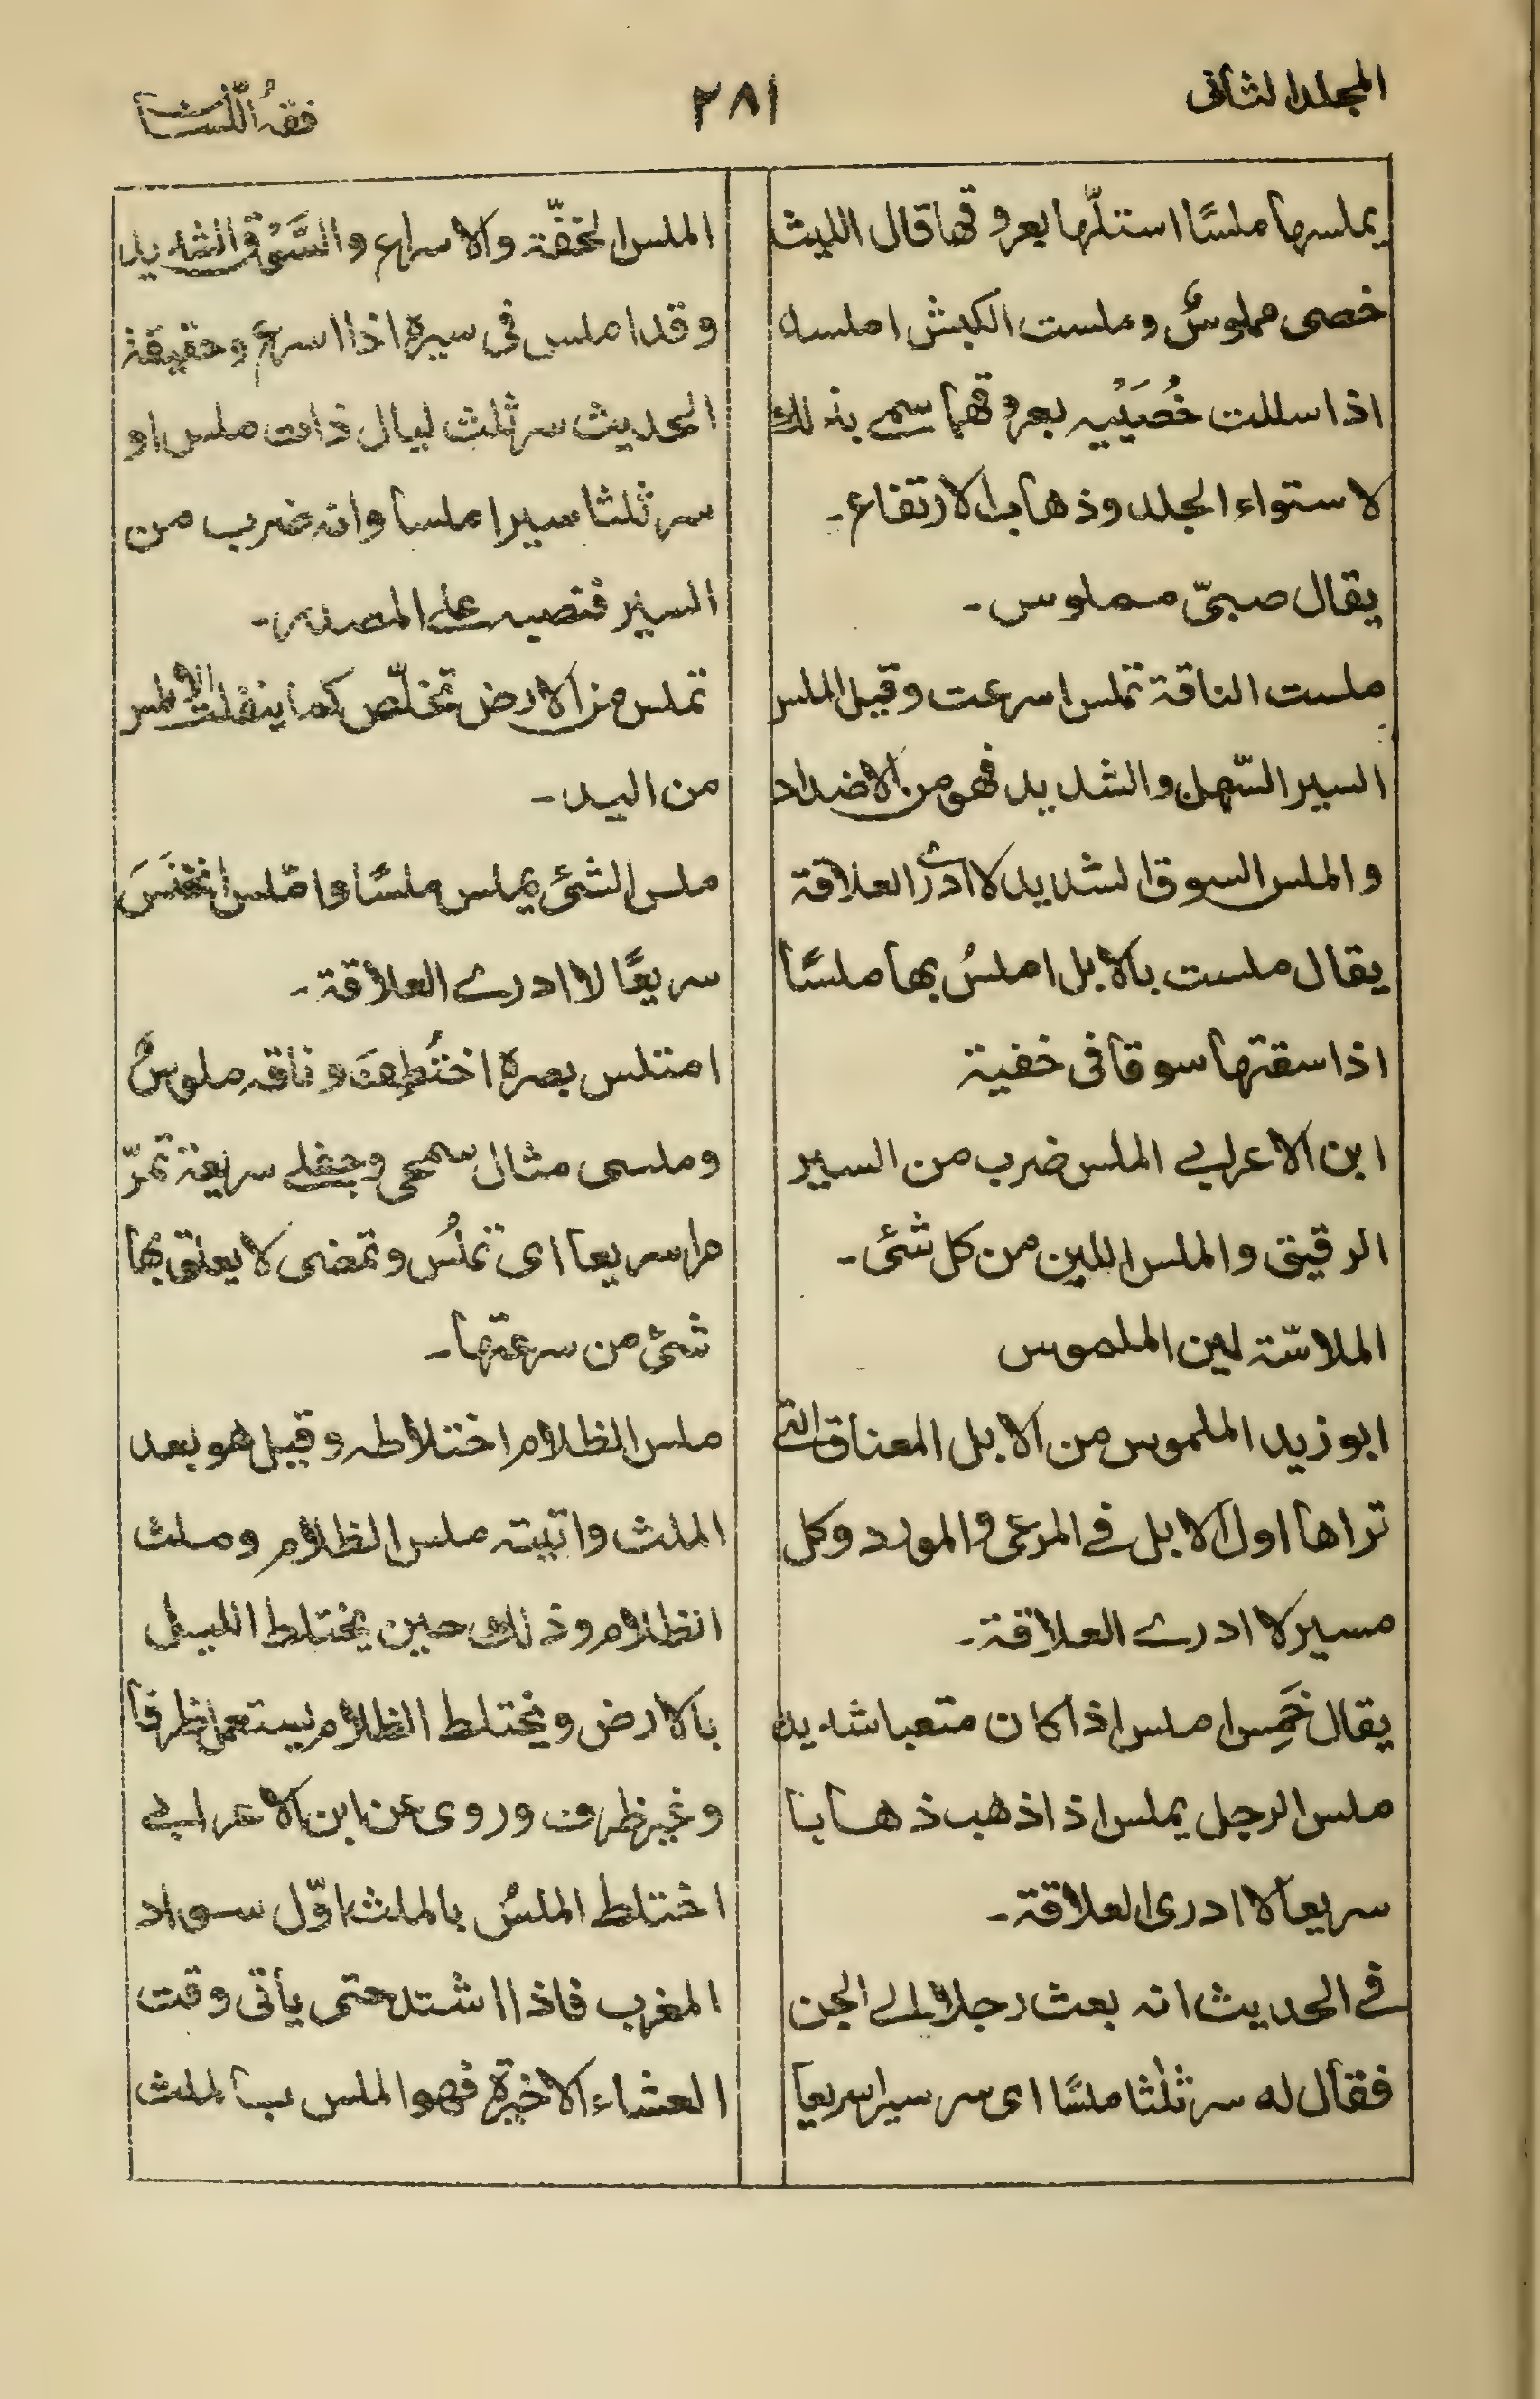 المجلد الثانی
٢٨١
فقهُ اللّسان
یملسها ملسًا استلّها بعروقها قال اللیث
خصی مملوسٌ وملست الکبش املسه
اذا سللت خُصیَیْیه بعروقهما سمے بذلك
لاستواء الجلد وذهاب الارتفاع۔
یقال صبیّ مملوس۔
ملست الناقة تملس اسرعت وقیل الملس
السیر السّهل والشدید فهو من الاضداد
والملس السوق الشدید لا ادرے العلاقة
یقال ملست بالابل املسُ بها ملسًا
اذا سقتها سوقا فی خفیة
ابن الاعرابے الملس ضرب من السیر
الرقیق والملس اللین من کل شئ۔
الملاسّة لین الملموس
ابو زید الملموس من الابل المعناق التے
تراها اول الابل فے المرعی والمورد وکل
مسیر لا ادرے العلاقة۔
یقال خَمِس املس اذا کان متعبا شدیدا
ملس الرجل یملس اذا ذهب ذهابا
سریعا لا ادری العلاقة۔
فے الحدیث انه بعث رجلا الے الجن
فقال له سر ثلثا ملسًا ای سر سیرا سریعا
الملس الخفّة والاسراع والسَّوْق الشدید
وقد املس فی سیره اذا اسرع وحقیقة
الحدیث سر ثلث لیال ذات ملس او
سر ثلثا سیرا ملسا وانه ضرب من
السیر فنصبه علے المصدر۔
تملس من الارض تخلّص کما ینفلت الاملس
من الید۔
ملس الشئ یملس ملسًا وامّلس انخنَسَ
سریعًا لا ادرے العلاقة۔
امتلس بصره اختُطِفَ وناقه ملوسٌ
وملسی مثال سمحی وجفلے سریعة تمرّ
مرا سریعا ای تملُس وتمضی لا یعلق بها
شئ من سرعتها۔
ملس الظلام اختلاطه وقیل هو بعد
الملث واتیته ملس الظلام وملث
الظلام وذلك حین یختلط اللیل
بالارض ویختلط الظلام یستعمل ظرفا
وغیر ظرف وروی عن ابن الاعرابے
اختلط الملسُ بالملث اوّل سواد
المغرب فاذا اشتد حتی یأتی وقت
العشاء الاخیرة فهو الملس بالملث